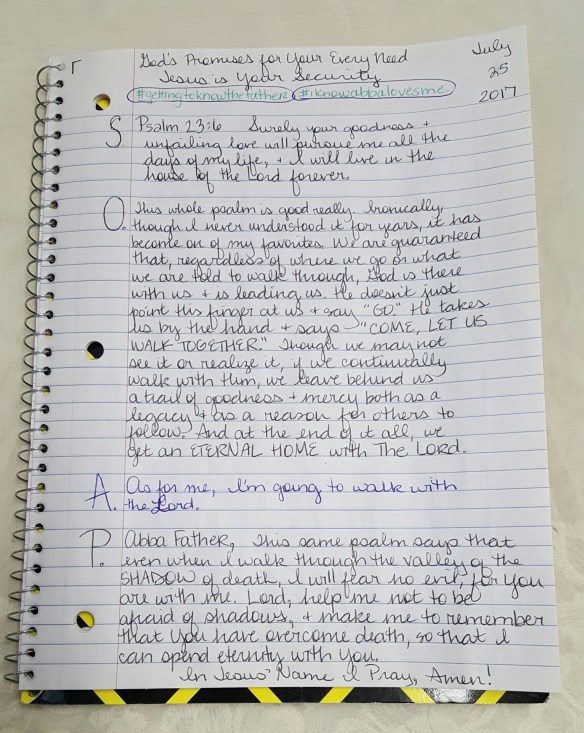 God's Promises for Your Every Need
July
Jesus is Your Security
25
#gettingtoknowthefather #iknowabbalovesme
2017
S Psalm 23:6 Surely your goodness +
unfailing love will pursue me all the
days of my life, + I will live in the
house of the Lord forever.
O. This whole psalm is good really. Ironically,
though I never understood it for years, it has
become on of my favorites. We are guaranteed
that, regardless of where we go or what
we are told to walk through, God is there
with us + is leading us. He doesn't just
point this finger at us + say "GO." He takes
us by the hand + says "COME, LET US
WALK TOGETHER." Though we may not
see it or realize it, if we continually
walk with Him, we leave behind us
a trail of goodness + mercy both as a
legacy + as a reason for others to
follow. And at the end of it all, we
get an ETERNAL HOME with The Lord.
A. As for me, I'm going to walk with
the Lord.
P. Abba Father, This same psalm says that
even when I walk through the valley of the
SHADOW of death, I will fear no evil, for You
are with me. Lord, help me not to be
afraid of shadows, + make me to remember
that You have overcome death, so that I
can spend eternity with You.
In Jesus' Name I Pray, Amen!